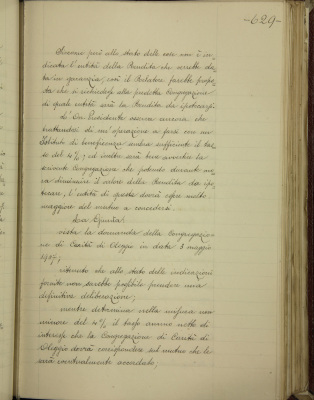 -629-
Siccome però allo stato delle cose non è in-
dicata l'entità della Rendita che verrebbe da-
ta in garanzia, così il Relatore farebbe propo-
sta che si richiedesse alla predetta Congregazione
di quale entità sarà la Rendita da ipotecarsi.
Il Sig. Presidente osserva ancora che
trattandosi di un'operazione a farsi con un
Istituto di beneficenza sembra sufficiente il tas-
so del 4%; ed inoltre sarà bene avvertire la
scrivente Congregazione che potendo durante mo-
ra diminuire il valore della Rendita da ipo-
tecare, l'entità di questa dovrà essere molto
maggiore del mutuo a concedersi.
La Giunta
vista la domanda della Congregazio-
ne di Carità di Oleggio in data 3 maggio
1907;
ritenuto che allo stato delle indicazioni
fornite non sarebbe possibile prendere una
definitiva deliberazione;
mentre determina nella misura non
minore del 4% il tasso annuo netto di
interesse che la Congregazione di Carità di
Oleggio dovrà corrispondere sul mutuo che le
sarà eventualmente accordato;